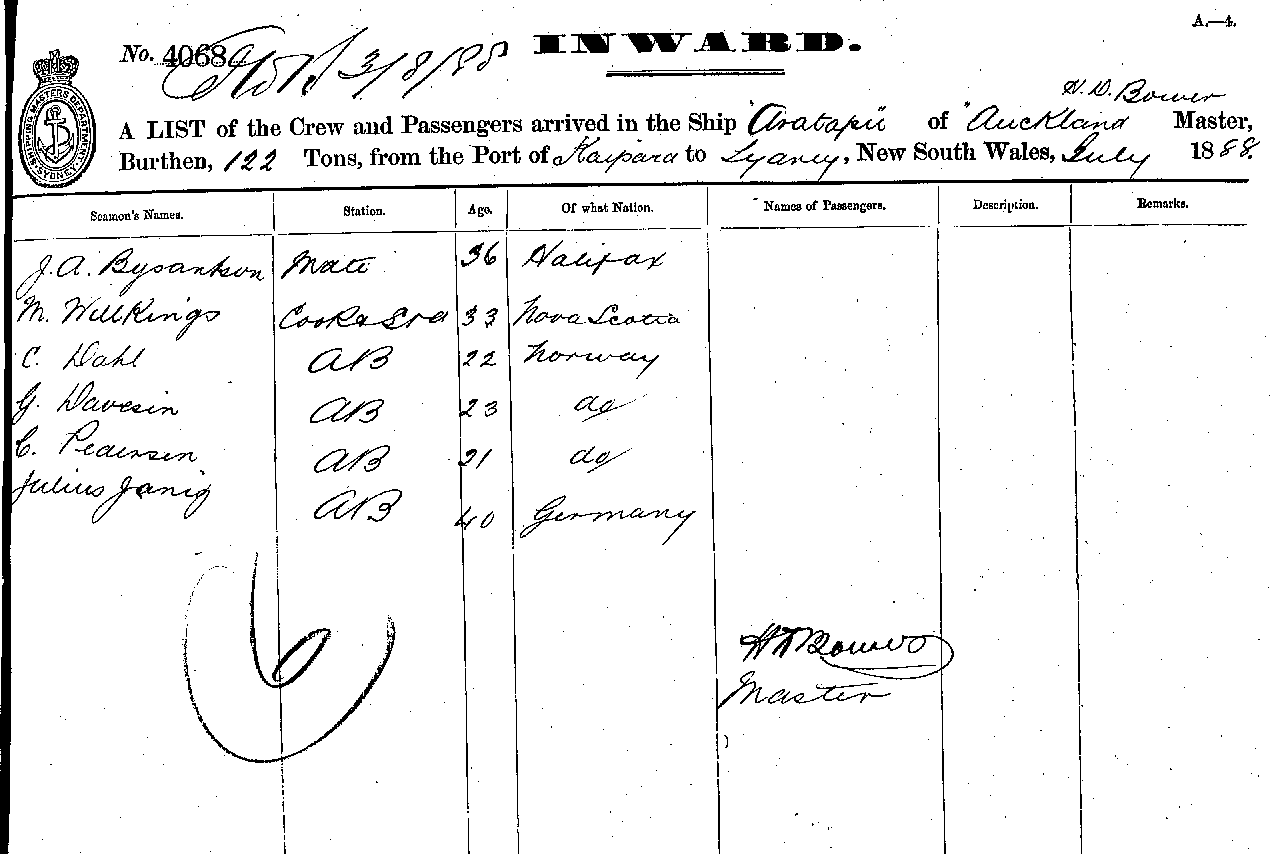 A.—4.
No. 4068 3/8/88 INWARD.
H. D. Bower
A LIST of the Crew and Passengers arrived in the Ship "Aratapu" of "Auckland Master,
Burthen, 122 Tons, from the Port of Kaipara to Sydney, New South Wales, July 1888.
SHIPPING MASTERS DEPARTMENT SYDNEY
Seamen's Names. Station. Age. Of what Nation. Names of Passengers. Description. Remarks.
J. A. Mate 36 Halifax
M. Willkings Cook & Std 33 Nova Scotia
C. Dahl AB 22 Norway
G. Davesin AB 23 do
C. Pedersen AB 21 do
Julius Janig AB 40 Germany
6
H D Bower
Master